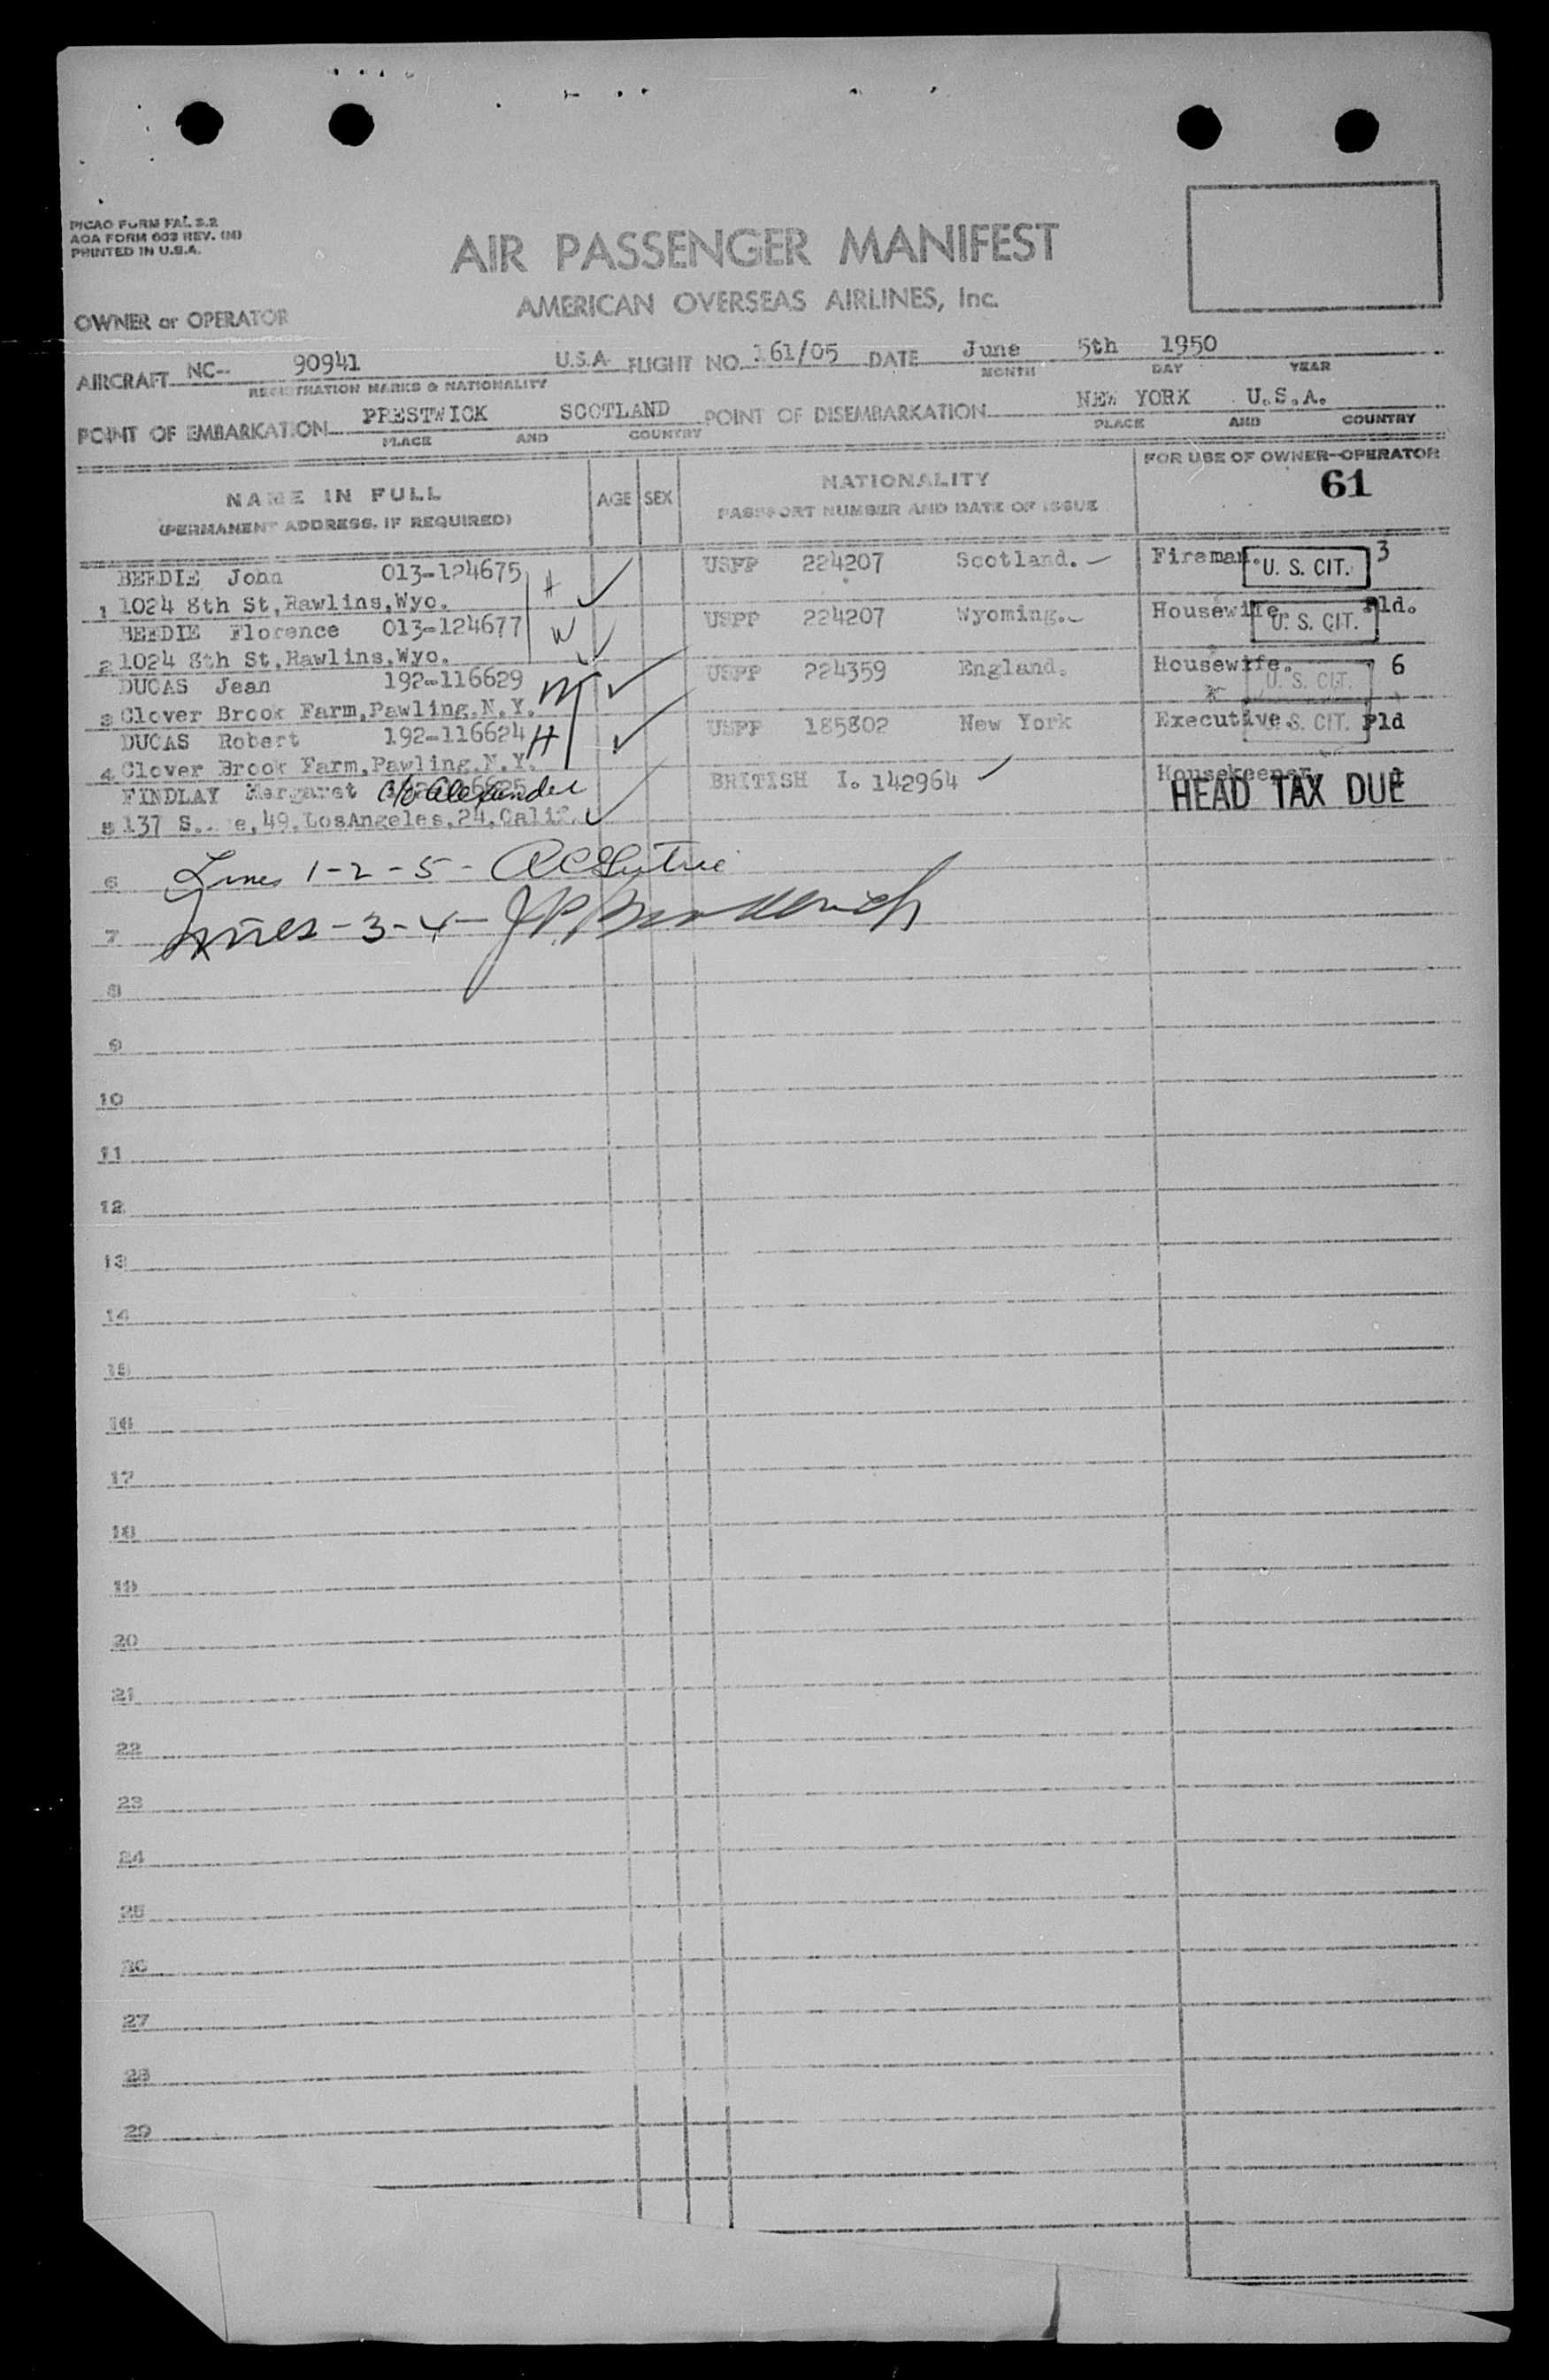 PICAO FORM FAL 3.2
AOA FORM 603 REV. (M)
PRINTED IN U.S.A.
AIR PASSENGER MANIFEST
AMERICAN OVERSEAS AIRLINES, Inc.
OWNER or OPERATOR
AIRCRAFT NC-- 90941 U.S.A. FLIGHT NO. 161/05 DATE June 5th 1950
REGISTRATION MARKS & NATIONALITY MONTH DAY YEAR
POINT OF EMBARKATION PRESTWICK SCOTLAND POINT OF DISEMBARKATION NEW YORK U.S.A.
PLACE AND COUNTRY PLACE AND COUNTRY
NAME IN FULL AGE SEX NATIONALITY FOR USE OF OWNER-OPERATOR
(PERMANENT ADDRESS, IF REQUIRED) PASSPORT NUMBER AND DATE OF ISSUE 61
BEEDIE John 013-124675 H USPP 224207 Scotland. Fireman. U. S. CIT. 3
1 1024 8th St,Rawlins,Wyo.
BEEDIE Florence 013-124677 W USPP 224207 Wyoming. Housewife U. S. CIT. Pld.
2 1024 8th St,Rawlins,Wyo.
DUCAS Jean 192-116629 USPP 224359 England. Housewife. U. S. CIT. 6
3 Clover Brook Farm,Pawling.N.Y.
DUCAS Robert 192-116624 H USPP 185802 New York Executive. U. S. CIT. Pld
4 Clover Brook Farm,Pawling.N.Y.
FINDLAY Margaret c/o Alexander BRITISH I. 142964 Housekeeper HEAD TAX DUE
5 137 49.LosAngeles.24.Calif.
6 Lines 1-2-5-
7 Lines-3-4-
8
9
10
11
12
13
14
15
16
17
18
19
20
21
22
23
24
25
26
27
28
29